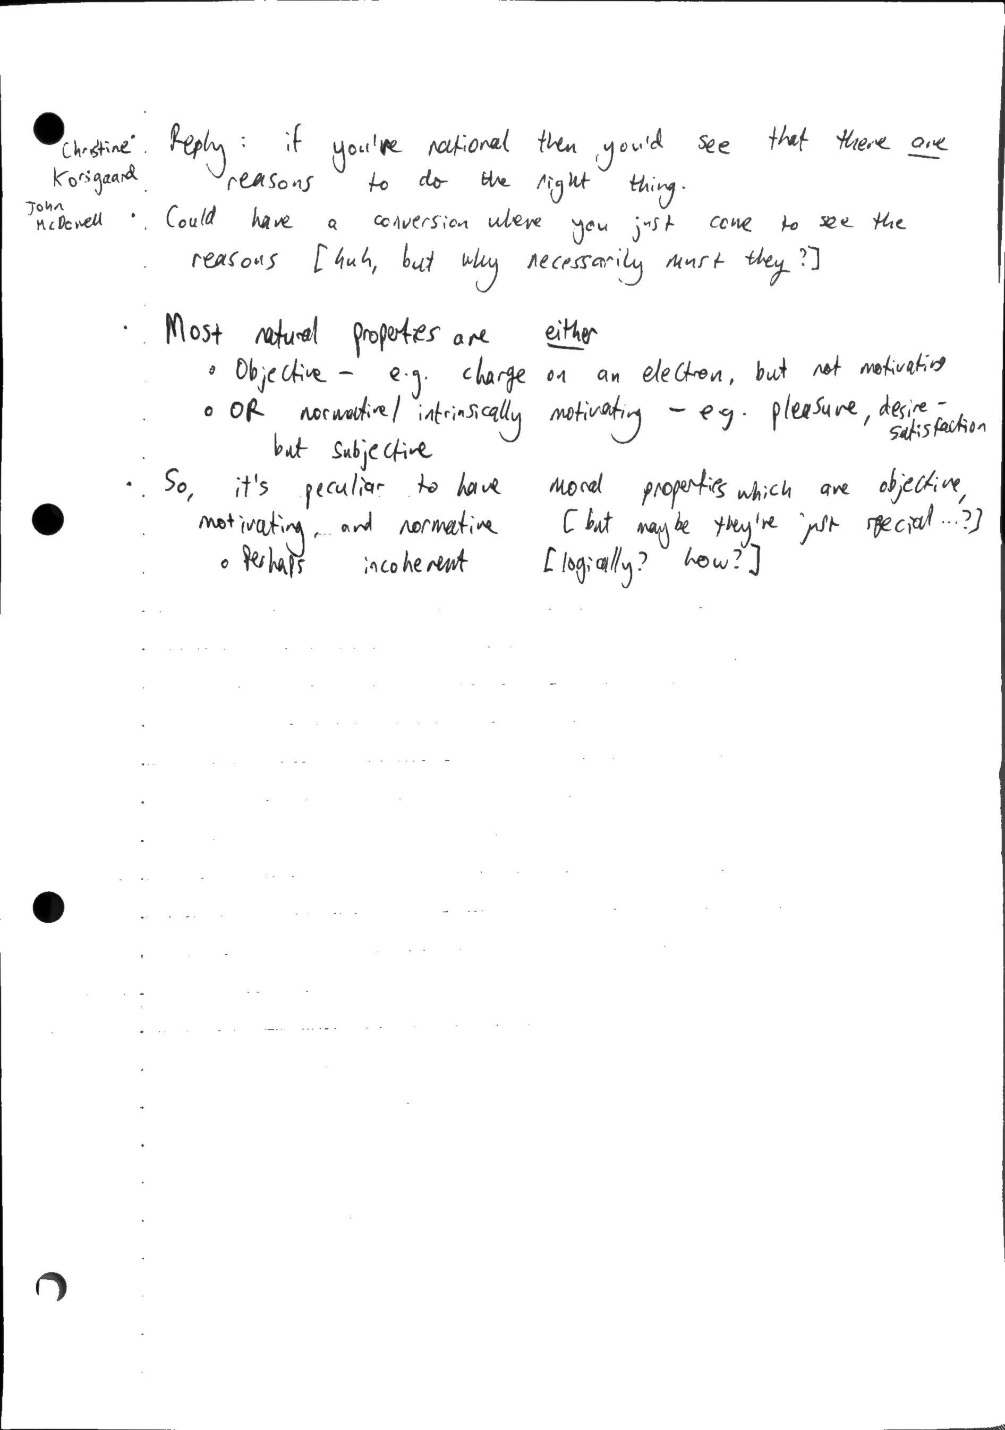 Christine
Korsgaard
John
McDowell
• Reply: if you're rational then you'd see that there are
reasons to do the right thing.
• Could have a conversion where you just come to see the
reasons [huh, but why necessarily must they?]
• Most natural properties are either
◦ Objective – e.g. charge on an electron, but not motivating
◦ OR normative/intrinsically motivating – e.g. pleasure, desire-
satisfaction
but subjective
• So, it's peculiar to have moral properties which are objective,
motivating, and normative [but maybe they're just special...?]
◦ Perhaps incoherent [logically? how?]